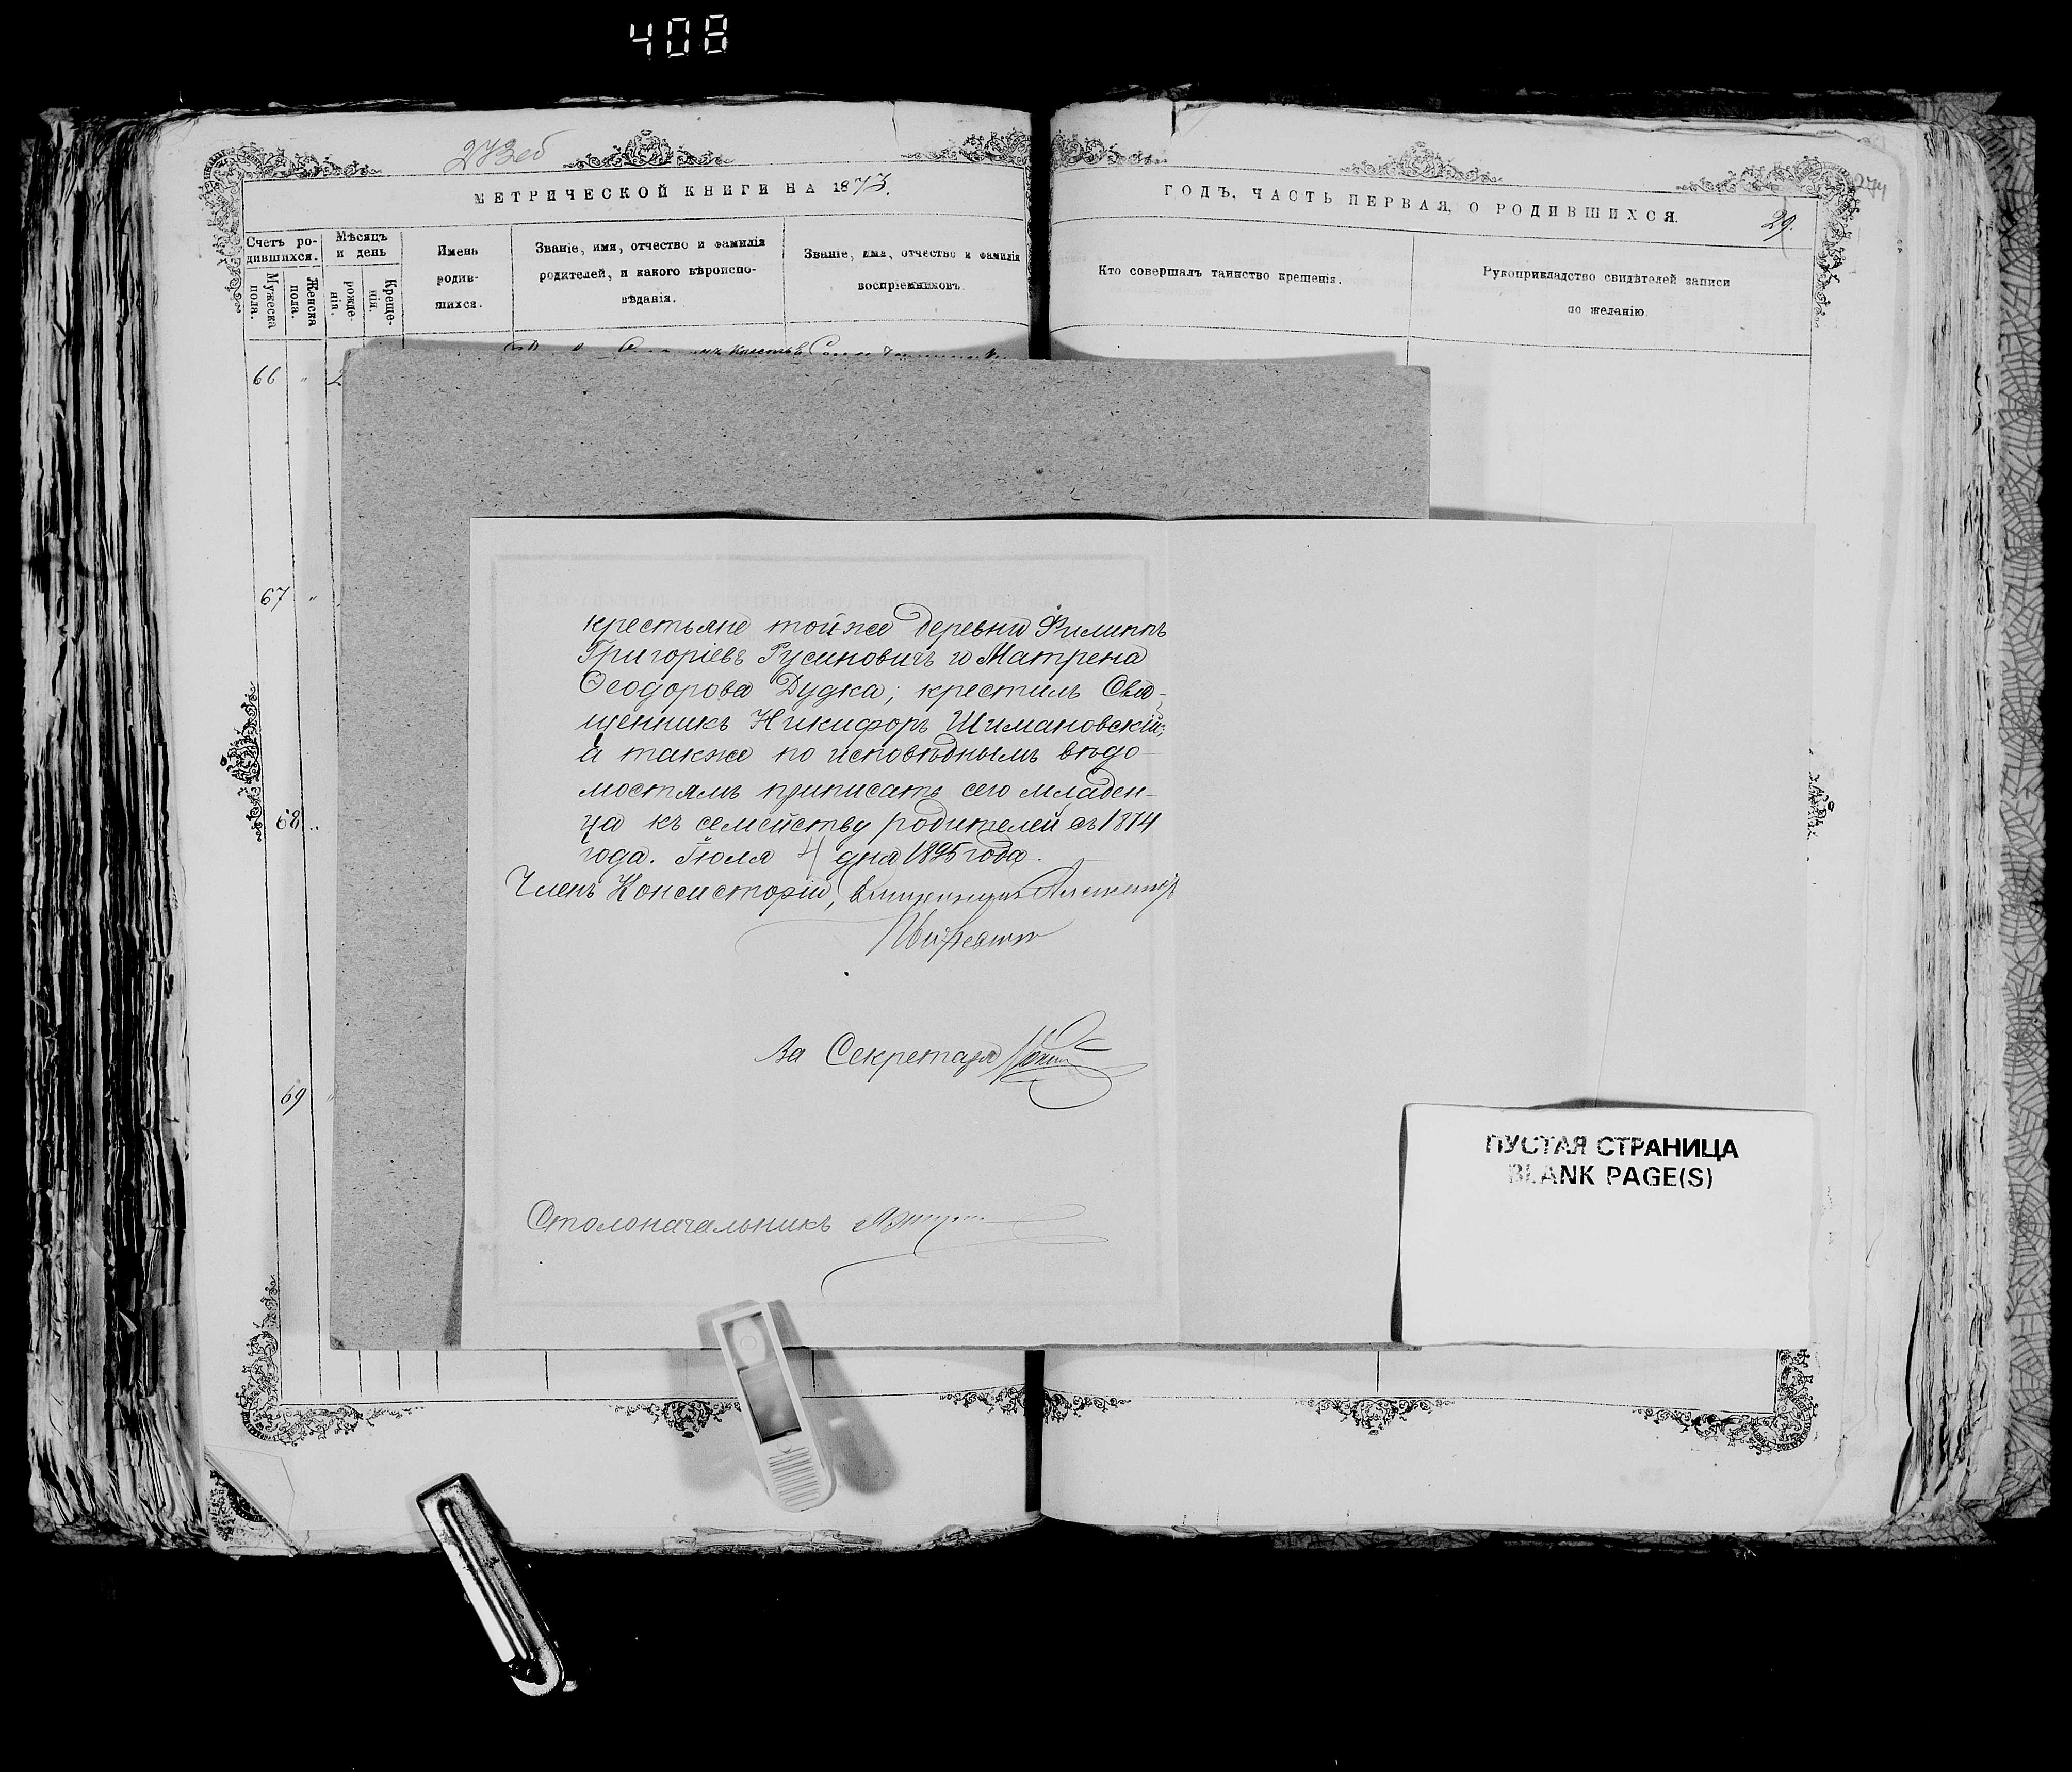 408
273об
МЕТРИЧЕСКОЙ КНИГИ НА 1873.
Счетъ ро-
дившихся.
Мужеска
пола.
Женска
пола.
Мѣсяцъ
и день
рожде-
нія.
Креще-
нія.
Имена
родив-
шихся.
Званіе, имя, отчество и фамилія
родителей, и какого вѣроиспо-
вѣданія.
Званіе, имя, отчество и фамилія
воспріемниковъ.
66 " 2
67 "
68 "
69 "
274
ГОДЪ, ЧАСТЬ ПЕРВАЯ, О РОДИВШИХСЯ.
29.
Кто совершалъ таинство крещенія.
Рукоприкладство свидѣтелей записи
по желанію.
крестьяне той же деревни Филиппъ
Григоріевъ Русиновичъ и Матрена
Ѳеодорова Дудка; крестилъ Свя-
щенникъ Никифоръ Шимановскій;
а также по исповѣднымъ вѣдо-
мостямъ приписать сего младен-
ца къ семейству родителей съ 1874
года. Іюля 4 дня 1895 года.
Членъ Консисторіи,
За Секретаря
Столоначальникъ
ПУСТАЯ СТРАНИЦА
BLANK PAGE(S)